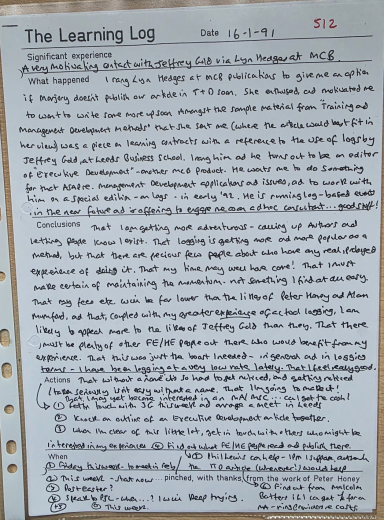 512
The Learning Log Date 16-1-91
Significant experience
A very motivating contact with Jeffrey Gold via Lyn Hedges at MCB.
What happened I rang Lyn Hedges at MCB publications to give me an option
if Marjory doesn't publish our article in T+D soon. She enthused and motivated me
to want to write some more up soon. Amongst the sample material from 'Training and
Management Development Methods' that she sent me (where the article would best fit in
her view) was a piece on learning contracts with a reference to the use of logs by
Jeffrey Gold at Leeds Business School. I rang him and he turns out to be an editor
of 'Executive Development' - another MCB product. He wants me to do something
for that ASAP re. management development applications and issues, and to work with
him on a special edition - on logs - in early '92. He is running log-based events
in the near future and is offering to engage me as an ad hoc consultant... good stuff!
Conclusions That I am getting more adventurous - calling up authors and
letting people know I exist. That logging is getting more and more popular as a
method, but that there are precious few people about who have any real in-depth
experience of doing it. That my time may well have come! That I must
make certain of maintaining the momentum - not something I find at all easy.
That my fees etc. will be far lower than the likes of Peter Honey and Alan
Mumford, and that, coupled with my greater experience of actual logging, I am
likely to appeal more to the likes of Jeffrey Gold than they. That there
must be plenty of other FE/HE people out there who would benefit from my
experience. That this was just the boost I needed - in general and in logging
terms - I have been logging at a very low rate lately. That I feel really good.
Actions That without a name it's so hard to get noticed, and getting noticed
to be seriously isn't easy without a name. That I'm going to make it.
That I may yet become interested in an MA/MSc...
① Get in touch with JG this week and arrange a meet in Leeds
② Knock an outline of an Executive Development article together.
③ When I'm clear of this little lot, get in touch with others who might be
interested in my experiences ④ Find out what FE/HE people read and publish there.
When
① Friday this week - to meet in Feb
② This week - start now
pinched, with thanks, from the work of Peter Honey
③ Post Easter?
④ Speak to
⑤ This week.
⑤ Find out from Malcolm